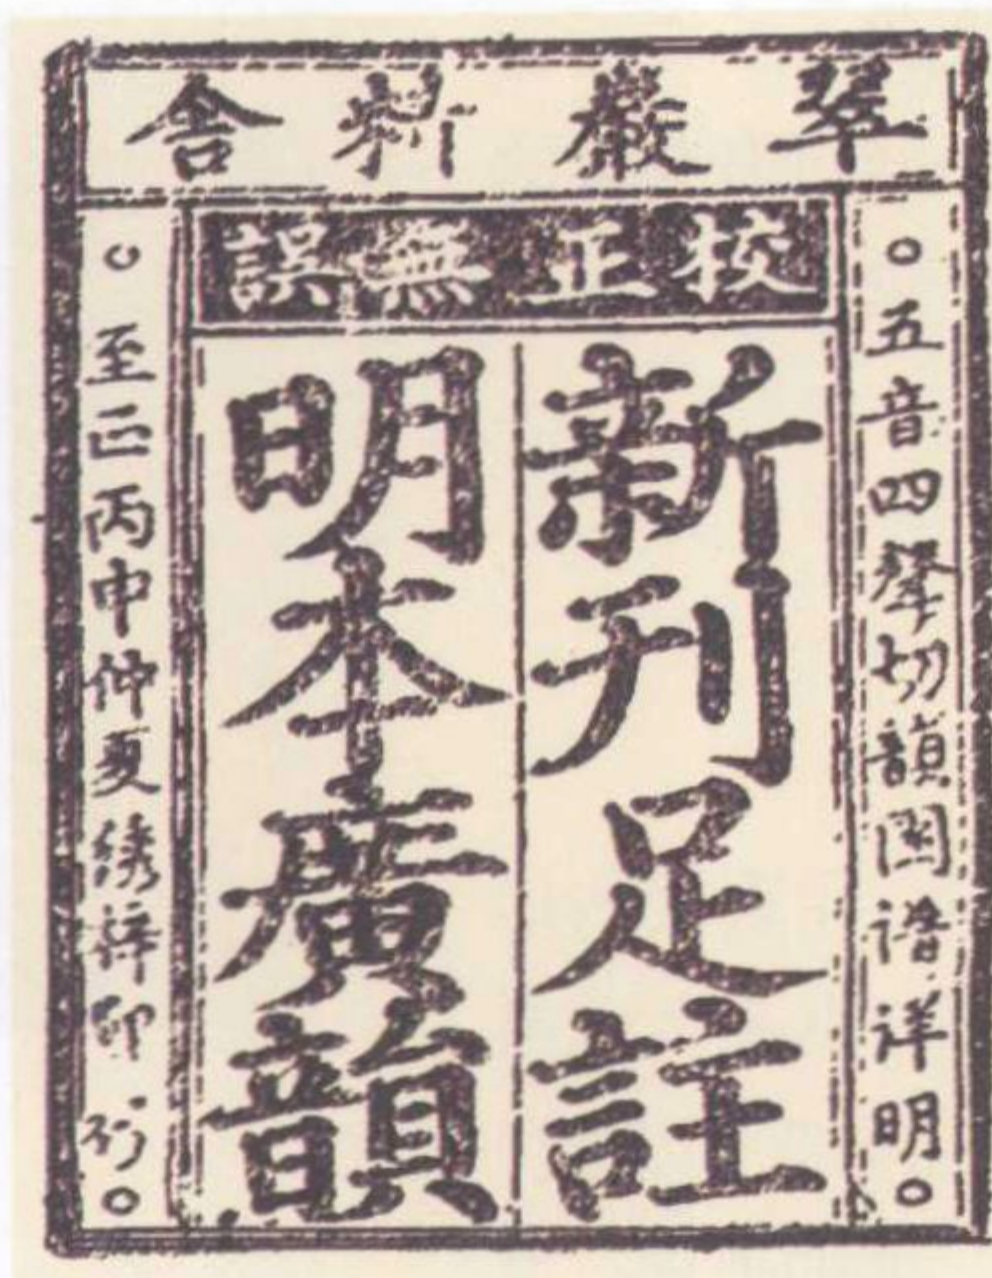 翠巖精舍
校正無誤
○五音四聲切韻圖譜詳明○
新刊足註
明本廣韻
○至正丙申仲夏綉梓印行○